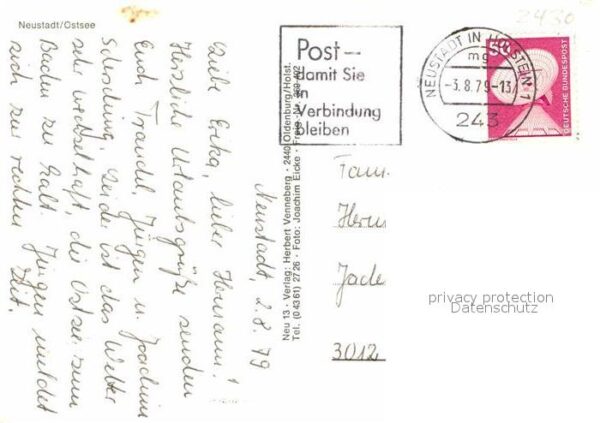 Neustadt/Ostsee
2430
Post –
damit Sie
in
Verbindung
bleiben
NEUSTADT IN HOLSTEIN 1
mg
-3.8.79-13
243
50
DEUTSCHE BUNDESPOST
Neustadt, 2.8.79
Liebe Erika, lieber Hermann!
Herzliche Urlaubsgrüße senden
Euch, Traudel, Jürgen u. Joachim
Leider ist das Wetter
sehr wechselhaft, die Ostsee zum
Baden zu kalt. Jürgen meldet
sich zur rechten Zeit.
Neu 13 · Verlag: Herbert Venneberg · 2440 Oldenburg/Holst.
Tel. (04361) 2726 · Foto: Joachim Eicke · Freig.
Fam.
Herm
Jade
3012
privacy protection
Datenschutz